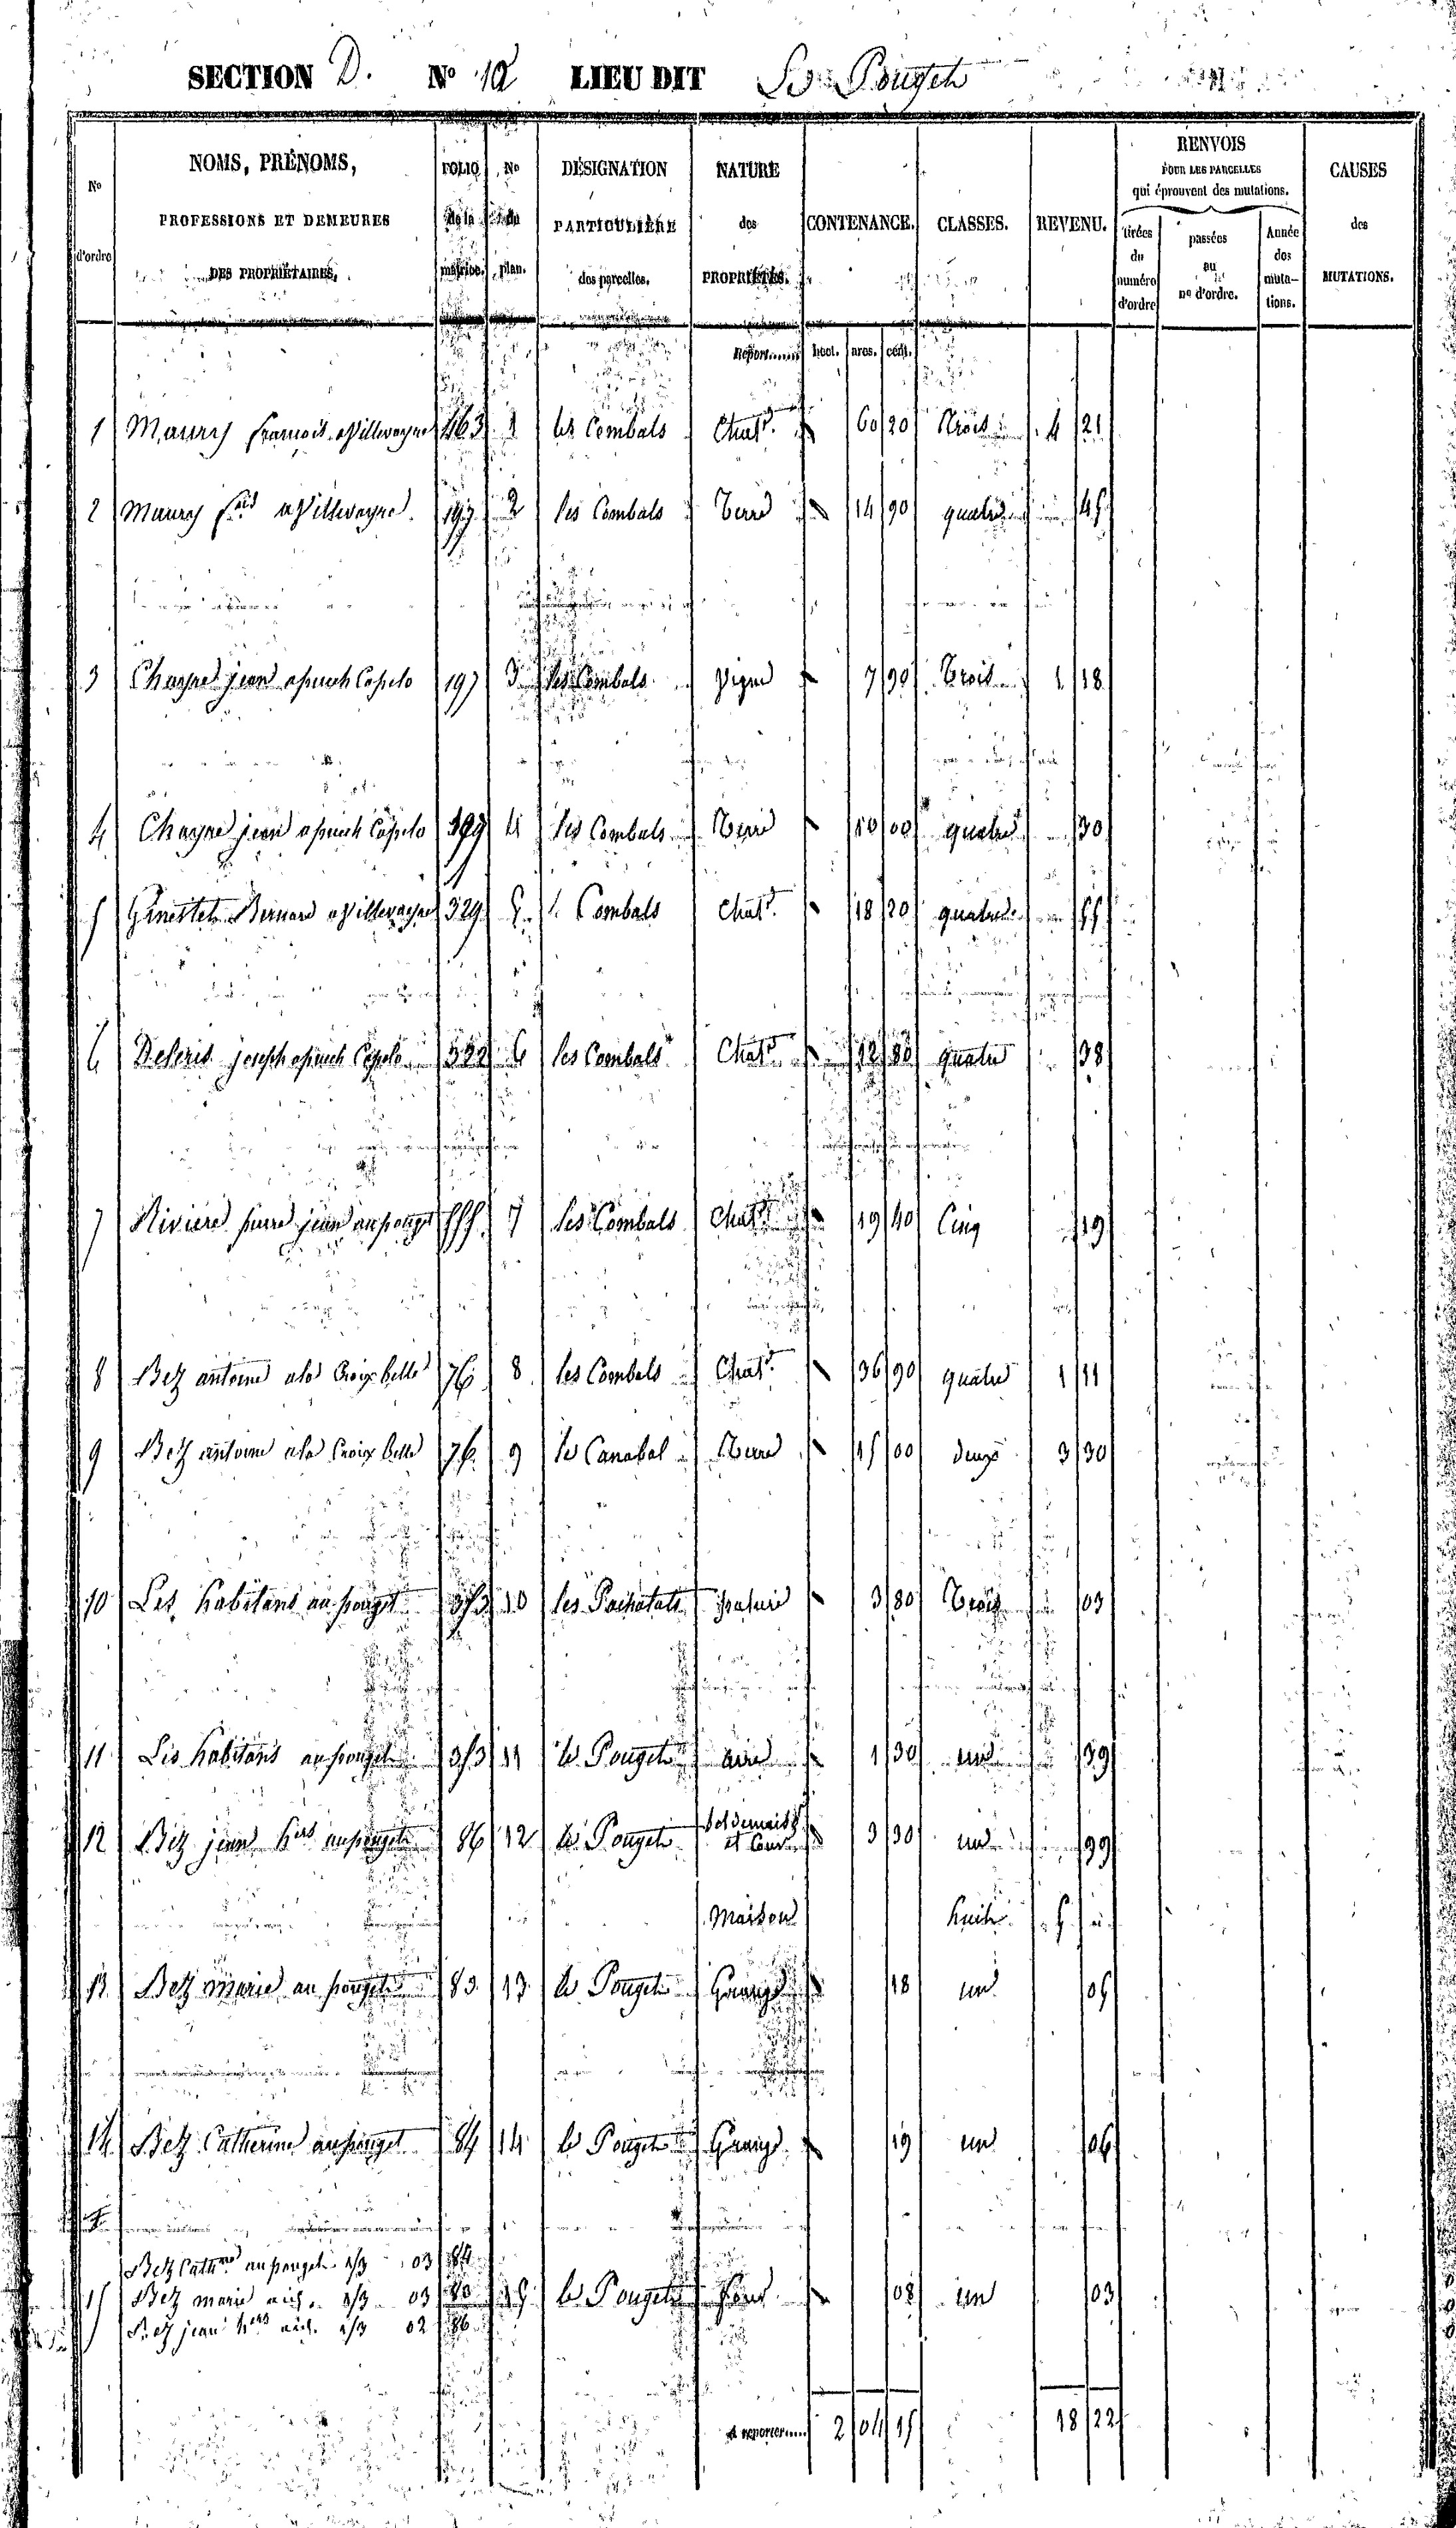 SECTION D. No 12 LIEU DIT Le Pouget
No d'ordre
NOMS, PRÉNOMS,
PROFESSIONS ET DEMEURES
DES PROPRIÉTAIRES.
FOLIO de la matrice.
No du plan.
DÉSIGNATION
PARTICULIÈRE
des parcelles.
NATURE
des
PROPRIÉTÉS.
CONTENANCE.
CLASSES.
REVENU.
RENVOIS
POUR LES PARCELLES
qui éprouvent des mutations.
tirées du numéro d'ordre
passées au no d'ordre.
Année des mutations.
CAUSES
des
MUTATIONS.
Report...... hect. ares. cent.
1 Maury françois a Villevayre 463 1 les Combals Chat. 60 20 Trois 4 21
2 Maury a Villevayre 2 les Combals Terre 14 90 quatre 45
3 Chayne jean a puech Capelo 197 3 les Combals Vigne 7 90 Trois 1 18
4 Chayne jean a puech Capelo 4 les Combals Terre 10 00 quatre 30
5 Ginestet Bernard a Villevayre 329 5 Combals Chat. 18 20 quatre 55
6 joseph a puech Capelo 6 les Combals Chat. 12 80 quatre 38
7 Riviere pierre jean au pouget 555 7 les Combals Chat. 19 40 Cinq 19
8 Betz antoine a la Croix belle 76 8 les Combals Chat. 36 90 quatre 1 11
9 Betz antoine a la Croix belle 76 9 le Canabal Terre 15 00 deux 3 30
10 Les habitans au pouget 353 10 les pature 3 80 Trois 03
11 Les habitans au pouget 353 11 le Pouget aire 1 30 une 39
12 Betz jean hers au pouget 86 12 le Pouget Sol de maison et Cour 3 30 un 99
Maison huit 5
13 Betz marie au pouget 83 13 le Pouget Grange 18 un 05
14 Betz Catherine au pouget 84 14 le Pouget Grange 19 un 06
Betz Cathne au pouget 1/3 03 84
15 Betz marie aud. 1/3 03 83 15 le Pouget four 08 un 03
Betz jean hers aud. 1/3 02 86
A reporter..... 2 04 15 18 22